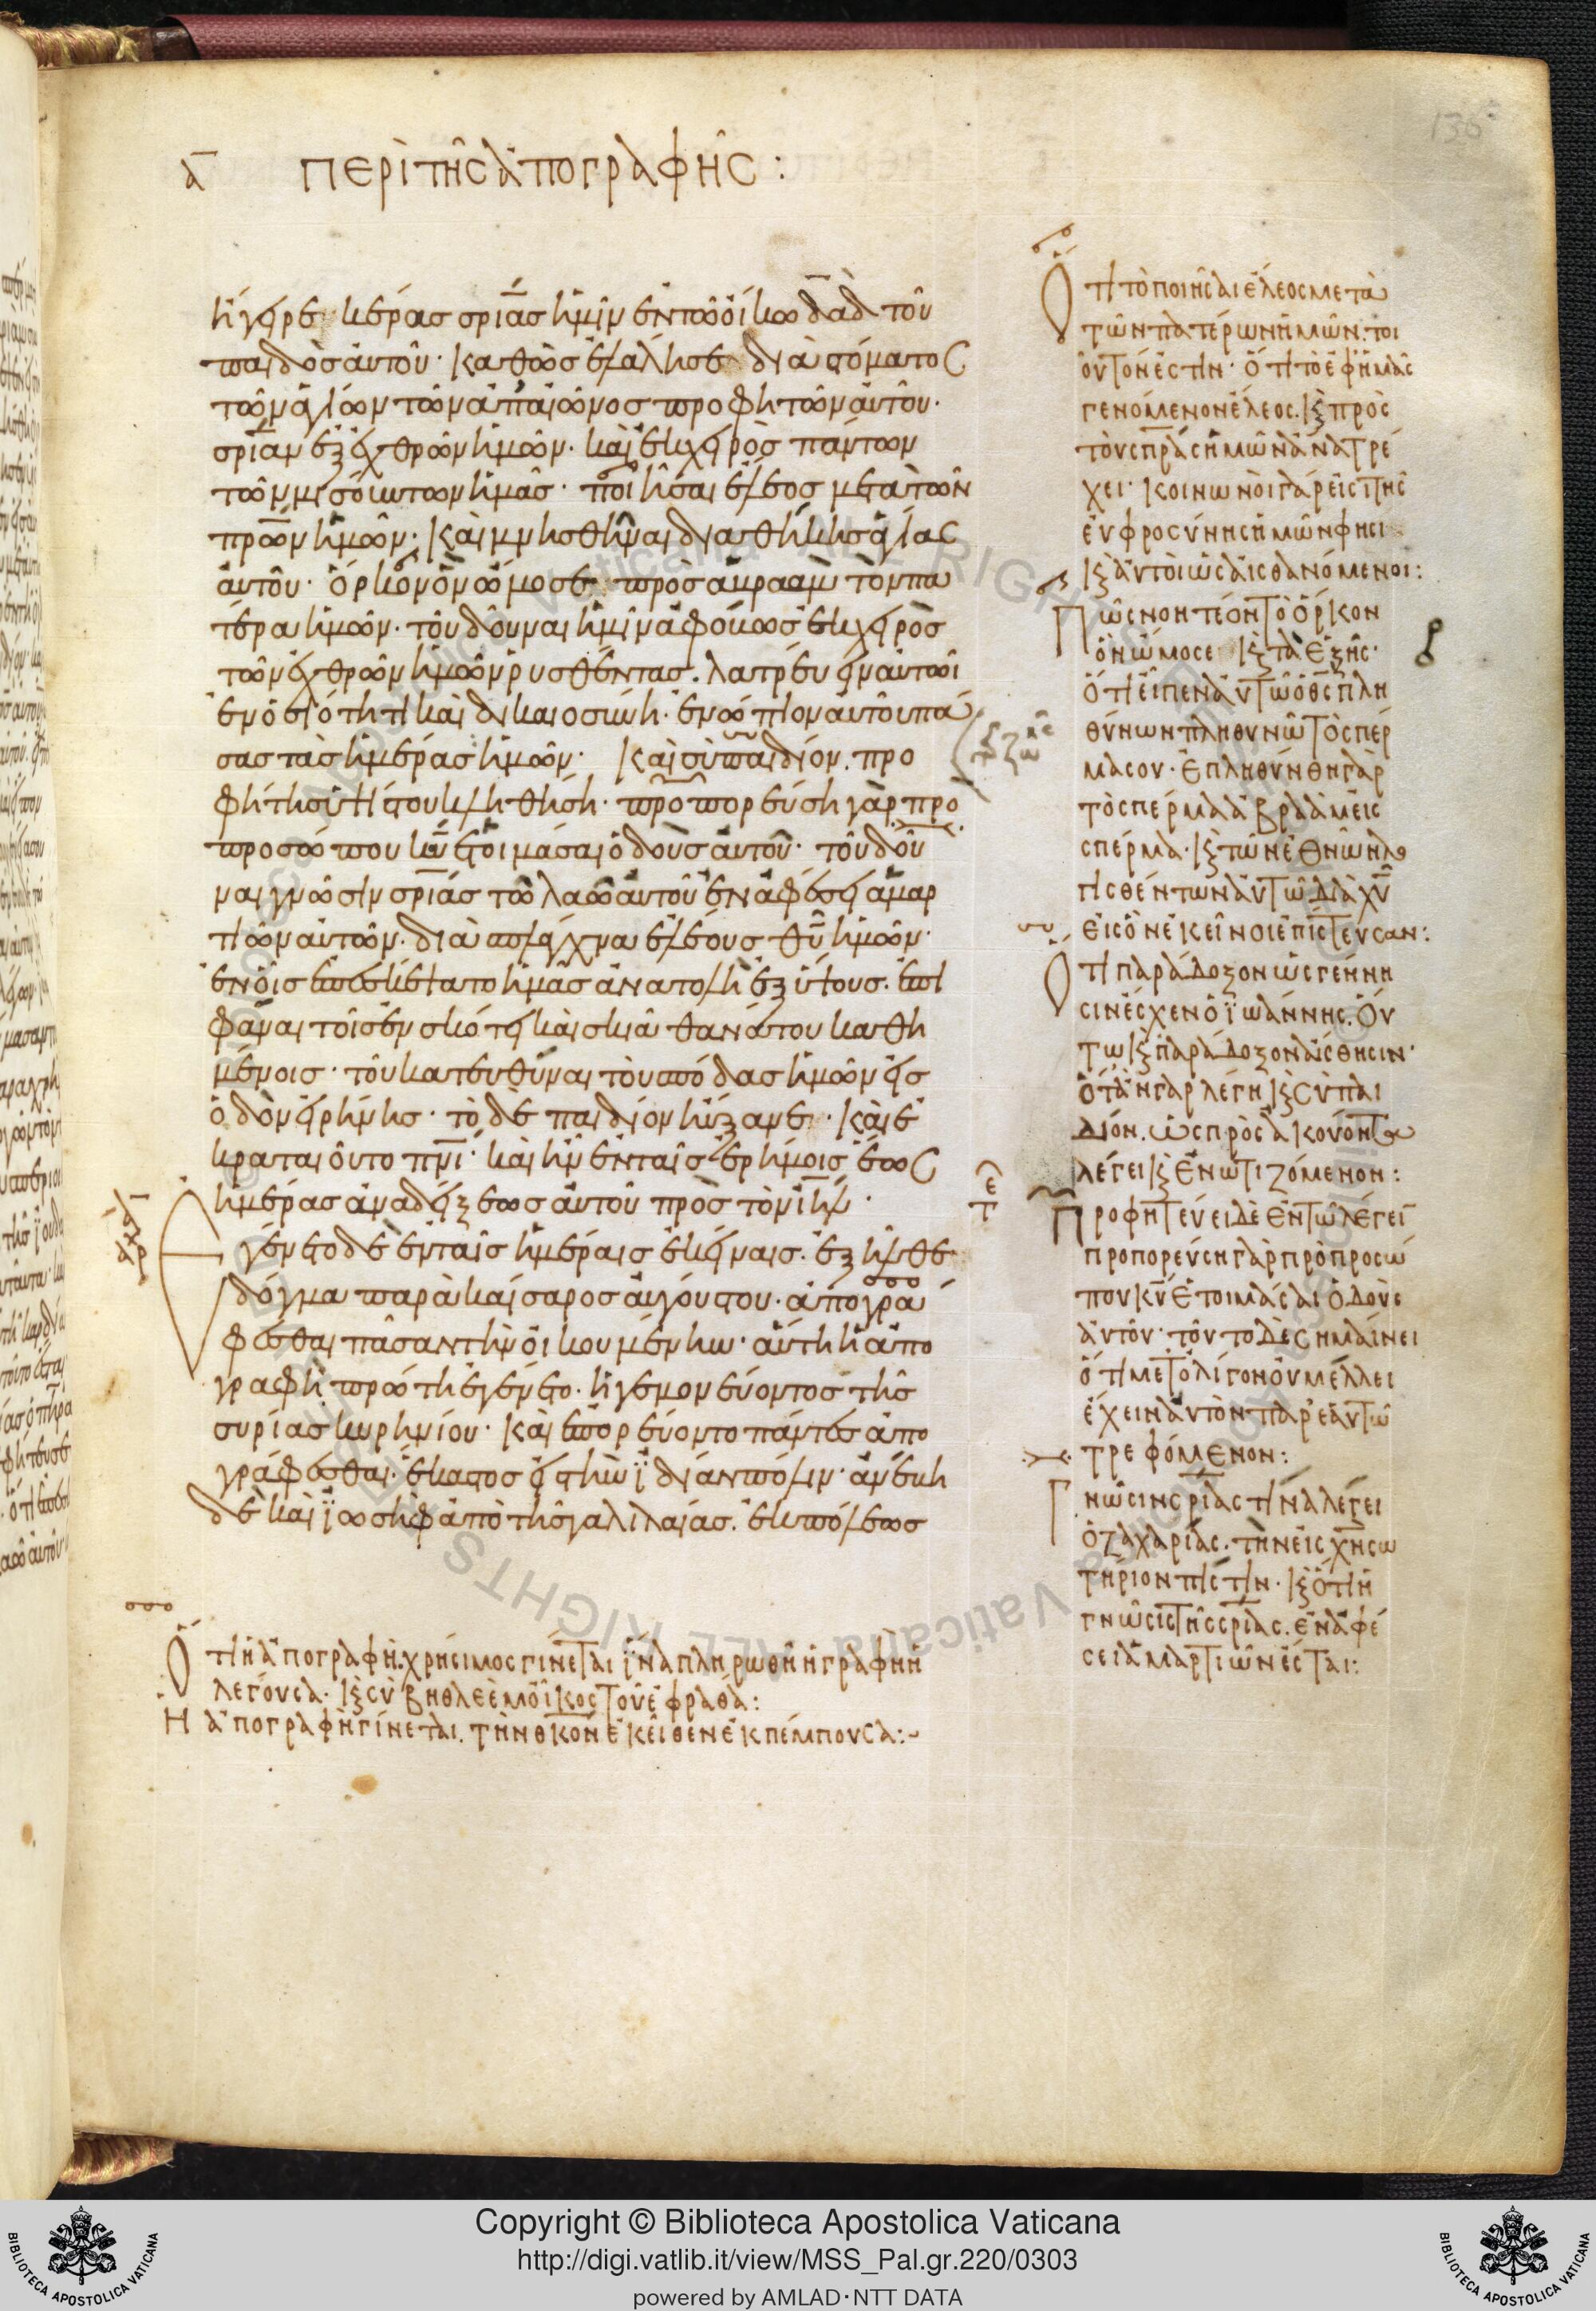 136
α ΠΕΡΙ ΤΗΣ ΑΠΟΓΡΑΦΗΣ :
ἤγειρε κέρας σρίας ἡμῖν ἐν τῶ οἴκω δαδ τοῦ
παιδὸς αὐτοῦ· καθὼς ἐλάλησε διὰ στόματος
τῶν ἁγίων τῶν ἀπαιῶνος προφητῶν αὐτοῦ·
σρίαν ἐξ ἐχθρῶν ἡμῶν· καὶ ἐκ χειρὸς πάντων
τῶν μισούντων ἡμᾶς· ποιῆσαι ἔλεος μετὰ τῶν
πρων ἡμῶν· καὶ μνησθῆναι διαθήκης ἁγίας
αὐτοῦ· ὅρκον ὃν ὤμοσε πρὸς ἀβρααμ τὸν πα
τέρα ἡμῶν· τοῦ δοῦναι ἡμῖν ἀφόβως ἐκ χειρὸς
τῶν ἐχθρῶν ἡμῶν ῥυσθέντας· λατρεύειν αὐτῶ
ἐν ὁσιότητι καὶ δικαιοσύνη· ἐνώπιον αὐτοῦ πά
σας τὰς ἡμέρας ἡμῶν· καὶ σὺ παιδίον. προ
φήτης ὑψίστου κληθήση· προπορεύση γὰρ πρὸ
προσώπου κυ ἑτοιμάσαι ὁδοὺς αὐτοῦ· τοῦ δοῦ
ναι γνῶσιν σρίας τῶ λαῶ αὐτοῦ ἐν ἀφέσει ἁμαρ
τιῶν αὐτῶν· διὰ σπλάγχνα ἐλέους θυ ἡμῶν·
ἐν οἷς ἐπεσκέψατο ἡμᾶς ἀνατολὴ ἐξ ὕψους· ἐπι
φᾶναι τοῖς ἐν σκότει καὶ σκιᾶ θανάτου καθη
μένοις· τοῦ κατευθῦναι τοὺς πόδας ἡμῶν εἰς
ὁδὸν εἰρήνης· τὸ δὲ παιδίον ηὔξανε· καὶ ἐ
κραταιοῦτο πνι· καὶ ἦν ἐν ταῖς ἐρήμοις ἕως
ἡμέρας ἀναδείξεως αὐτοῦ πρὸς τὸν ιηλ·
Ἐγένετο δὲ ἐν ταῖς ἡμέραις ἐκείναις· ἐξῆλθε
δόγμα παρὰ καίσαρος αὐγούστου· ἀπογρά
φεσθαι πᾶσαν τὴν οἰκουμένην· αὕτη ἡ ἀπο
γραφὴ πρώτη ἐγένετο· ἡγεμονεύοντος τῆς
συρίας κυρηνίου· καὶ ἐπορεύοντο πάντες ἀπο
γράφεσθαι· ἕκαστος εἰς τὴν ἰδίαν πόλιν· ἀνέβη
δὲ καὶ ϊωσὴφ ἀπὸ τῆς γαλιλαίας· ἐκ πόλεως
Ὅτι ἡ ἀπογραφὴ χρήσιμος γίνεται ἵνα πληρωθῆ ἡ γραφὴ ἡ
λέγουσα· κὲ σὺ βηθλεὲμ οἶκος τοῦ ἐφραθά:
Ἡ ἀπογραφὴ γίνεται. τὴν θκον ἐκεῖθεν ἐκπέμπουσα:
Ὅτι τὸ ποιῆσαι ἔλεος μετὰ
τῶν πατέρων ἡμῶν· τοι
οῦτον ἐστιν· ὅτι τὸ ἐφ ἡμᾶς
γενόμενον ἔλεος. κὲ πρὸς
τοὺς πρας ἡμῶν ἀνατρέ
χει· κοινωνοὶ γάρ εἰσι τῆς
εὐφροσύνης ἡμῶν φησι
κὲ αὐτοὶ ὡς αἰσθανόμενοι:
Πῶς νοητέον τὸ ὅρκον
ὃν ὤμοσε κὲ τὰ ἑξῆς·
ὅτι εἶπεν αὐτῶ ὁ θς πλη
θύνων πληθυνῶ τὸ σπέρ
μα σου· ἐπληθύνθη γὰρ
τὸ σπέρμα ἀβραὰμ εἰς
σπέρμα· κὲ τῶν ἐθνῶν
πισθέντων αὐτῶ διὰ χυ
εἰς ὃν ἐκεῖνοι ἐπίστευσαν:
Ὅτι παράδοξον ὡς γέννη
σιν ἔσχεν ὁ ϊωάννης. οὕ
τω κὲ παράδοξον αἴσθησιν·
ὅταν γὰρ λέγη κὲ σὺ παι
δίον. ὡς πρὸς ἀκούοντα
λέγει κὲ ἐνωτιζόμενον:
Προφητεύει δὲ ἐν τῶ λέγειν
προπορεύση γὰρ πρὸ προσώ
που κυ ἑτοιμάσαι ὁδοὺς
αὐτοῦ· τοῦτο δὲ σημαίνει
ὅτι μετ ὀλίγον οὐ μέλλει
ἔχειν αὐτὸν παρ ἑαυτῶ
τρεφόμενον:
Γνῶσιν σρίας τίνα λέγει
ὁ ζαχαρίας. τὴν εἰς χν σω
τήριον πίστιν· κὲ ὅτι ἡ
γνῶσις τῆς σρίας. ἐν ἀφέ
σει ἁμαρτιῶν ἔσται:
Copyright © Biblioteca Apostolica Vaticana
http://digi.vatlib.it/view/MSS_Pal.gr.220/0303
powered by AMLAD·NTT DATA
BIBLIOTECA APOSTOLICA VATICANA
BIBLIOTECA APOSTOLICA VATICANA